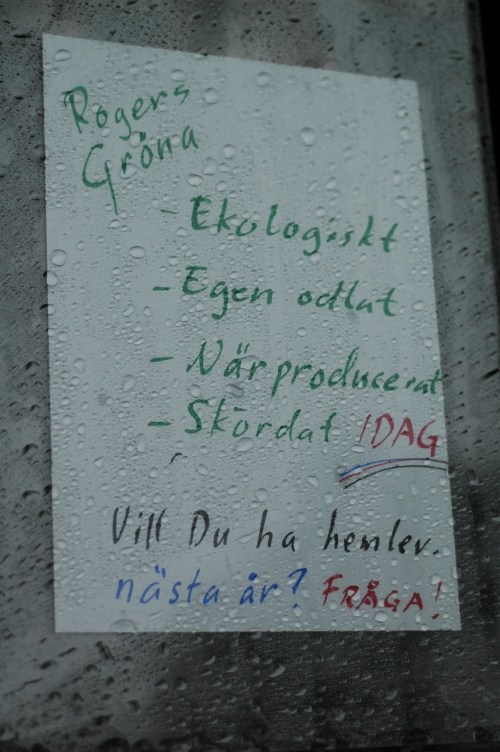 Rogers
Gröna
- Ekologiskt
- Egen odlat
- Närproducerat
- Skördat IDAG
Vill Du ha hemlev.
nästa år? FRÅGA!